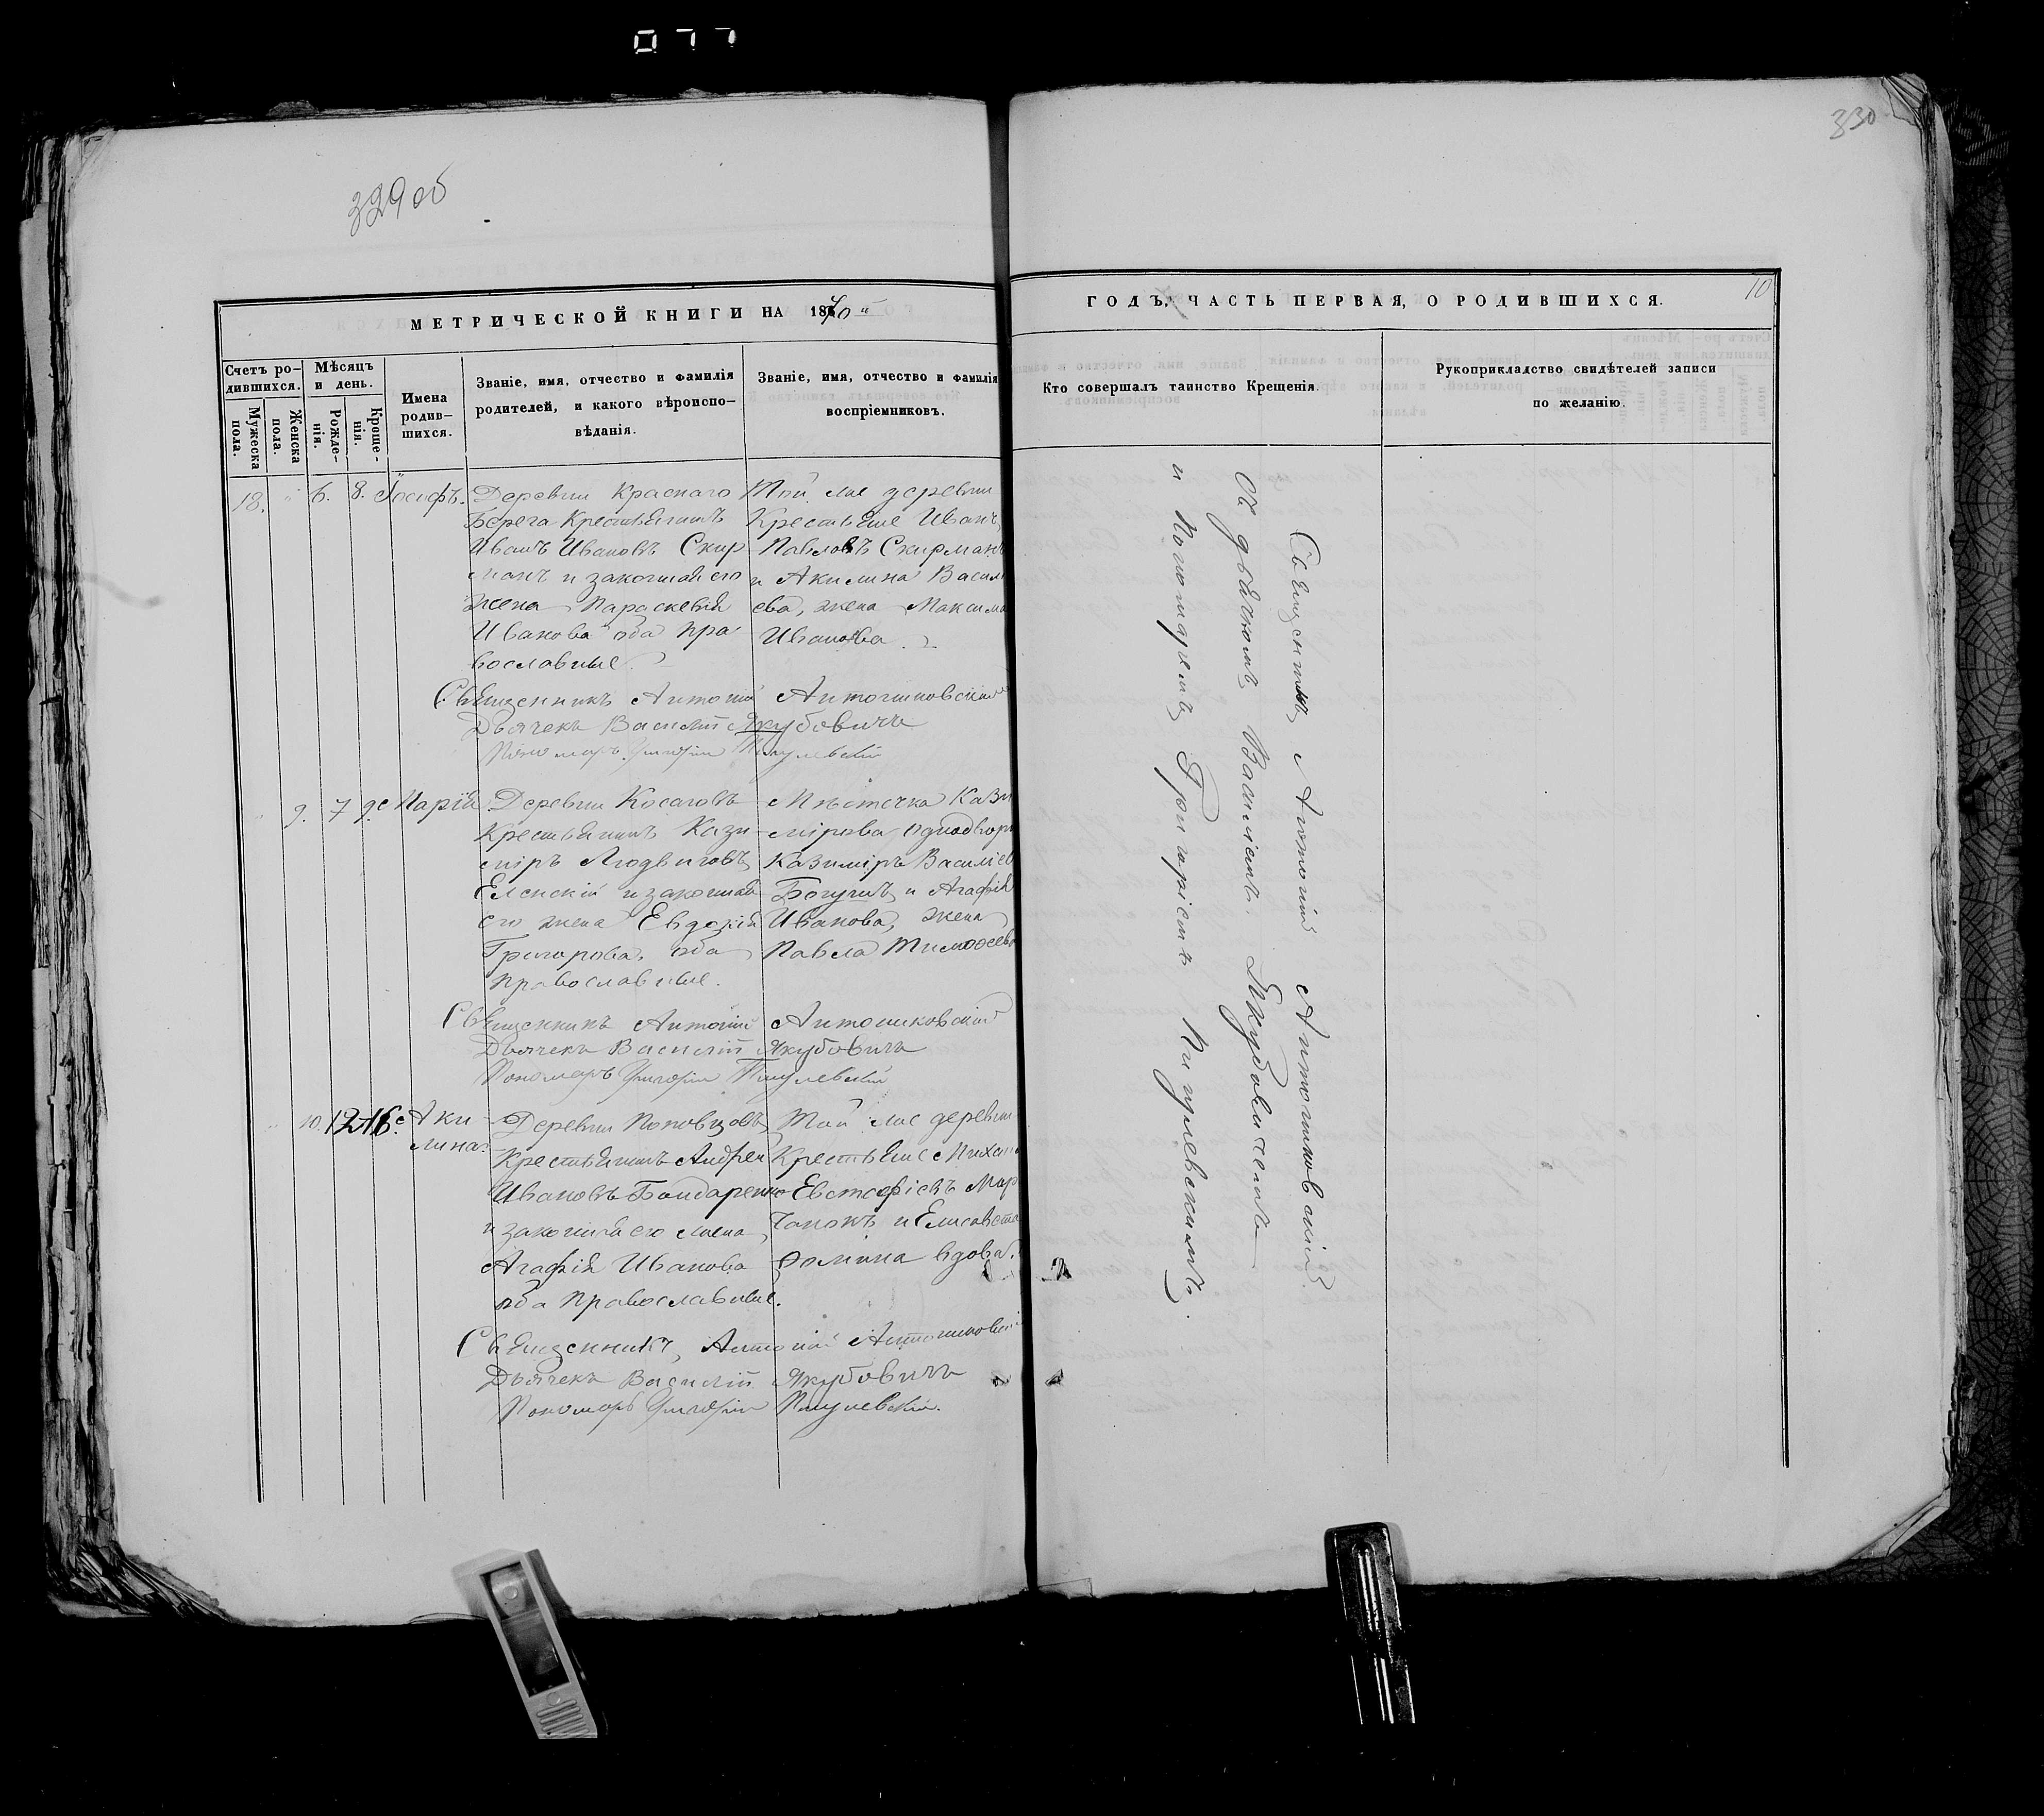 077
329 об
330
МЕТРИЧЕСКОЙ КНИГИ НА 1870 й
ГОДЪ, ЧАСТЬ ПЕРВАЯ, О РОДИВШИХСЯ.
10
Счетъ ро-
дившихся.
Мужеска
пола.
Женска
пола.
Мѣсяцъ
и день.
Рожде-
нія.
Креще-
нія.
Имена
родив-
шихся.
Званіе, имя, отчество и фамилія
родителей, и какого вѣроиспо-
вѣданія.
Званіе, имя, отчество и фамилія
воспріемниковъ.
Кто совершалъ таинство Крещенія.
Рукоприкладство свидѣтелей записи
по желанію.
18.
6.
8.
Іосифъ.
Деревни Краснаго
Берега Крестьянинъ
Иванъ Ивановъ Скир
манъ и законная его
жена Параскевія
Иванова оба пра
вославные.
Той же деревни
Крестьяне Иванъ
Павловъ Скирман
и Акилина Васил
ева, жена Максима
Иванова.
Священникъ Антоній Антониковскій
Дьячекъ Василій Якубовичъ
Пономаръ Григорій Пигулевскій
9.
7
9.
Марія
Деревни Косаговъ
Крестьянинъ Кази-
міръ Людвиговъ
Еленскій и законная
его жена Евдокія
Григорова, оба
православные.
Мѣстечка Кази
мірова, однодвор
Казиміръ Василіев
Богушъ и Агафія
Иванова, жена
Павла Тимоѳеева
Священникъ Антоній Антониковскій
Дьячекъ Василій Якубовичъ
Пономаръ Григорій Пигулевскій
10.
12
16.
Аки-
лина.
Деревни Поповцовъ
Крестьянинъ Андрей
Ивановъ Бондаренко
и законная его жена
Агафія Иванова
оба православные.
Той же деревни
Крестьяне Михаи
Евстафіевъ Мар
чонокъ и Елисавета
Ѳомина вдова.
Священникъ Антоній Антониковскій
Дьячекъ Василій Якубовичъ
Пономаръ Григорій Пигулевскій.
Священникъ Антоній Антониковскій
съ дьячкомъ Василіемъ Якубовичемъ
и Пономаремъ Григоріемъ Пигулевскимъ.